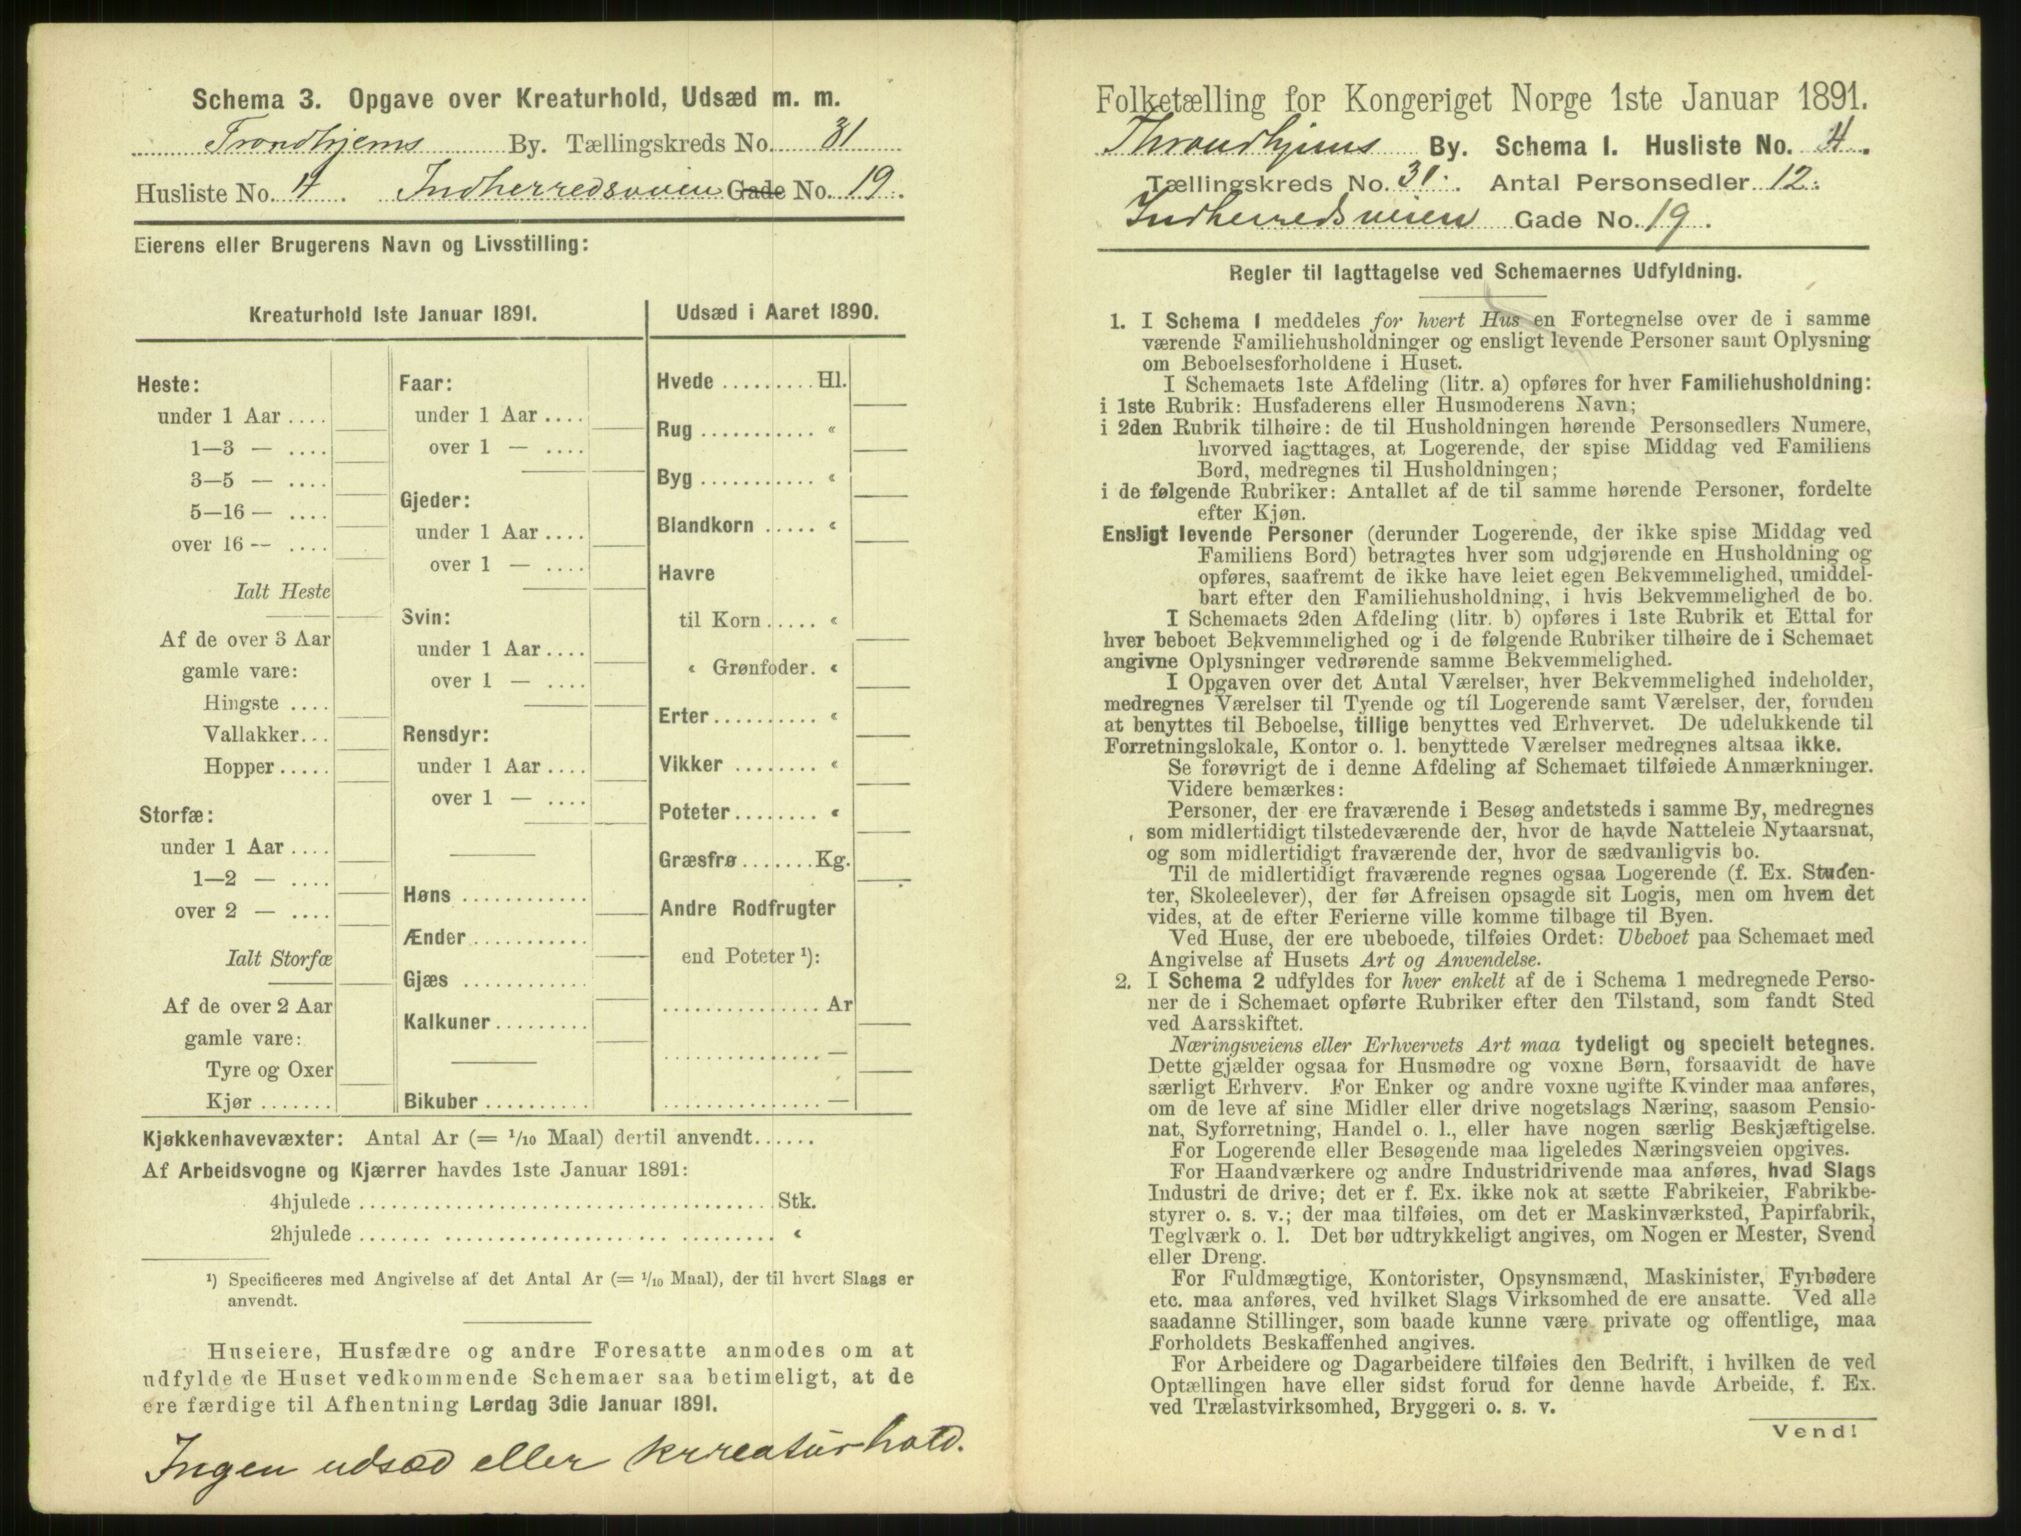 Schema 3. Opgave over Kreaturhold, Udsæd m. m.
Trondhjems By. Tællingskreds No. 31
Husliste No. 4. Indherredsveien Gade No. 19.
Eierens eller Brugerens Navn og Livsstilling:
Kreaturhold 1ste Januar 1891.
Heste:
under 1 Aar ....
1—3 — ....
3—5 — ....
5—16 — ....
over 16 — ....
Ialt Heste
Af de over 3 Aar
gamle vare:
Hingste ....
Vallakker...
Hopper.....
Storfæ:
under 1 Aar ....
1—2 — ....
over 2 — ....
Ialt Storfæ
Af de over 2 Aar
gamle vare:
Tyre og Oxer
Kjør .......
Faar:
under 1 Aar ....
over 1 — ....
Gjeder:
under 1 Aar ....
over 1 — ....
Svin:
under 1 Aar ....
over 1 — ....
Rensdyr:
under 1 Aar ....
over 1 — ....
Høns ............
Ænder...........
Gjæs ............
Kalkuner.........
Bikuber..........
Udsæd i Aaret 1890.
Hvede .........Hl.
Rug ........... «
Byg ........... «
Blandkorn ..... «
Havre
til Korn ..... «
« Grønfoder. «
Erter.......... «
Vikker ........ «
Poteter........ «
Græsfrø .......Kg.
Andre Rodfrugter
end Poteter ¹):
............... Ar
............... —
............... —
Kjøkkenhavevæxter: Antal Ar (= 1/10 Maal) dertil anvendt......
Af Arbeidsvogne og Kjærrer havdes 1ste Januar 1891:
4hjulede ......................................Stk.
2hjulede ...................................... «
¹) Specificeres med Angivelse af det Antal Ar (= 1/10 Maal), der til hvert Slags er
anvendt.
Huseiere, Husfædre og andre Foresatte anmodes om at
udfylde de Huset vedkommende Schemaer saa betimeligt, at de
ere færdige til Afhentning Lørdag 3die Januar 1891.
Ingen udsæd eller krreaturhold.
Folketælling for Kongeriget Norge 1ste Januar 1891.
Throndhjems By. Schema 1. Husliste No. 4.
Tællingskreds No. 31. Antal Personsedler 12.
Indherredsveien Gade No. 19.
Regler til Iagttagelse ved Schemaernes Udfyldning.
1. I Schema 1 meddeles for hvert Hus en Fortegnelse over de i samme
værende Familiehusholdninger og ensligt levende Personer samt Oplysning
om Beboelsesforholdene i Huset.
I Schemaets 1ste Afdeling (litr. a) opføres for hver Familiehusholdning:
i 1ste Rubrik: Husfaderens eller Husmoderens Navn;
i 2den Rubrik tilhøire: de til Husholdningen hørende Personsedlers Numere,
hvorved iagttages, at Logerende, der spise Middag ved Familiens
Bord, medregnes til Husholdningen;
i de følgende Rubriker: Antallet af de til samme hørende Personer, fordelte
efter Kjøn.
Ensligt levende Personer (derunder Logerende, der ikke spise Middag ved
Familiens Bord) betragtes hver som udgjørende en Husholdning og
opføres, saafremt de ikke have leiet egen Bekvemmelighed, umiddel-
bart efter den Familiehusholdning, i hvis Bekvemmelighed de bo.
I Schemaets 2den Afdeling (litr. b) opføres i 1ste Rubrik et Ettal for
hver beboet Bekvemmelighed og i de følgende Rubriker tilhøire de i Schemaet
angivne Oplysninger vedrørende samme Bekvemmelighed.
I Opgaven over det Antal Værelser, hver Bekvemmelighed indeholder,
medregnes Værelser til Tyende og til Logerende samt Værelser, der, foruden
at benyttes til Beboelse, tillige benyttes ved Erhvervet. De udelukkende til
Forretningslokale, Kontor o. l. benyttede Værelser medregnes altsaa ikke.
Se forøvrigt de i denne Afdeling af Schemaet tilføiede Anmærkninger.
Videre bemærkes:
Personer, der ere fraværende i Besøg andetsteds i samme By, medregnes
som midlertidigt tilstedeværende der, hvor de havde Natteleie Nytaarsnat,
og som midlertidigt fraværende der, hvor de sædvanligvis bo.
Til de midlertidigt fraværende regnes ogsaa Logerende (f. Ex. Studen-
ter, Skoleelever), der før Afreisen opsagde sit Logis, men om hvem det
vides, at de efter Ferierne ville komme tilbage til Byen.
Ved Huse, der ere ubeboede, tilføies Ordet: Ubeboet paa Schemaet med
Angivelse af Husets Art og Anvendelse.
2. I Schema 2 udfyldes for hver enkelt af de i Schema 1 medregnede Perso-
ner de i Schemaet opførte Rubriker efter den Tilstand, som fandt Sted
ved Aarsskiftet.
Næringsveiens eller Erhvervets Art maa tydeligt og specielt betegnes.
Dette gjælder ogsaa for Husmødre og voxne Børn, forsaavidt de have
særligt Erhverv. For Enker og andre voxne ugifte Kvinder maa anføres,
om de leve af sine Midler eller drive nogetslags Næring, saasom Pensio-
nat, Syforretning, Handel o. l., eller have nogen særlig Beskjæftigelse.
For Logerende eller Besøgende maa ligeledes Næringsveien opgives.
For Haandværkere og andre Industridrivende maa anføres, hvad Slags
Industri de drive; det er f. Ex. ikke nok at sætte Fabrikeier, Fabrikbe-
styrer o. s. v.; der maa tilføies, om det er Maskinværksted, Papirfabrik,
Teglværk o. l. Det bør udtrykkeligt angives, om Nogen er Mester, Svend
eller Dreng.
For Fuldmægtige, Kontorister, Opsynsmænd, Maskinister, Fyrbødere
etc. maa anføres, ved hvilket Slags Virksomhed de ere ansatte. Ved alle
saadanne Stillinger, som baade kunne være private og offentlige, maa
Forholdets Beskaffenhed angives.
For Arbeidere og Dagarbeidere tilføies den Bedrift, i hvilken de ved
Optællingen have eller sidst forud for denne havde Arbeide, f. Ex.
ved Trælastvirksomhed, Bryggeri o. s. v.
Vend!